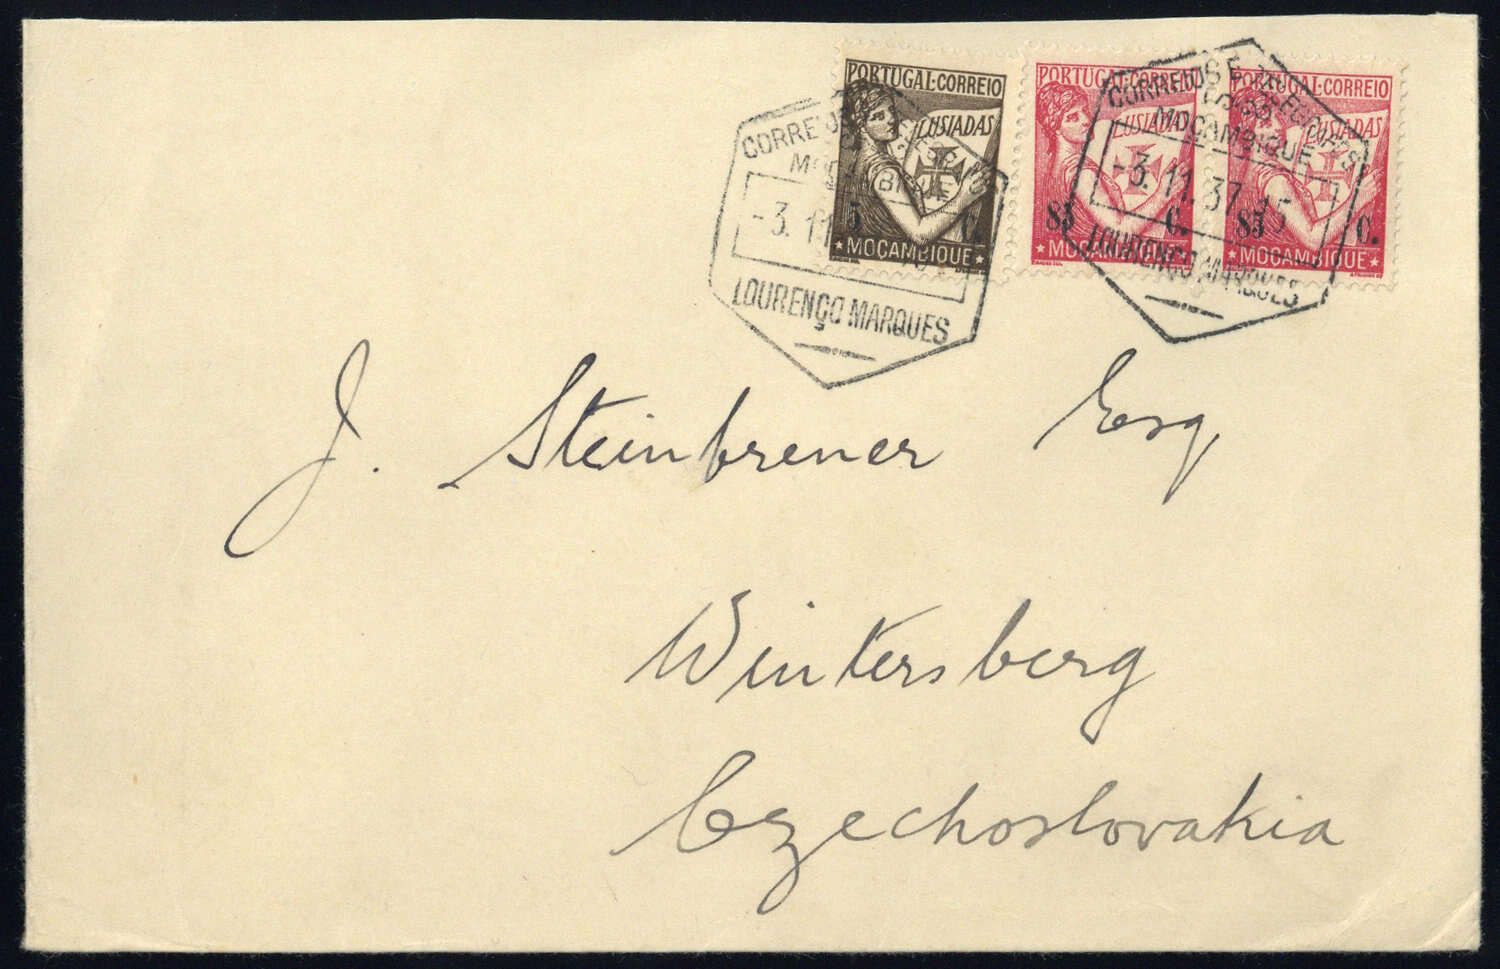 PORTUGAL·CORREIO
LUSIADAS
5 C.
MOÇAMBIQUE
PORTUGAL·CORREIO
LUSIADAS
85 C.
MOÇAMBIQUE
PORTUGAL·CORREIO
LUSIADAS
85 C.
MOÇAMBIQUE
CORREIOS E
MOÇAMBIQUE
-3. 11
LOURENÇO MARQUES
CORREIOS E TELEGRAFOS
MOÇAMBIQUE
-3. 11. 37. 15
LOURENÇO MARQUES
J. Steinbrener Esq.
Wintersberg
Czechoslovakia